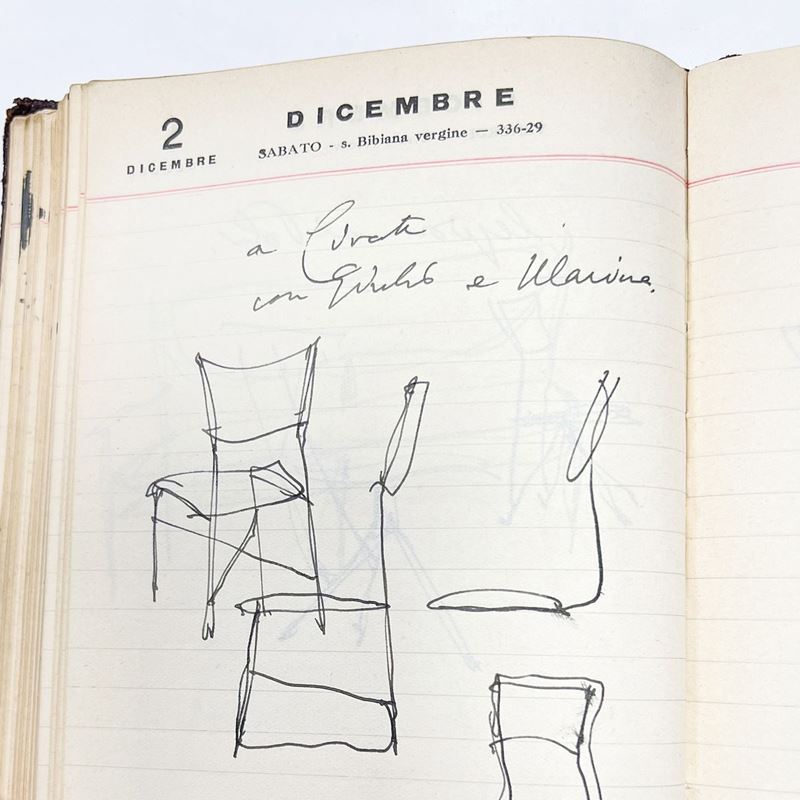 DICEMBRE
2
DICEMBRE
SABATO - s. Bibiana vergine — 336-29
a
con Giulio e Marina.